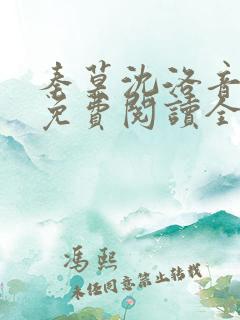 秦墓沈洛音
免費閱讀全
馮熙
未经同意禁止转载